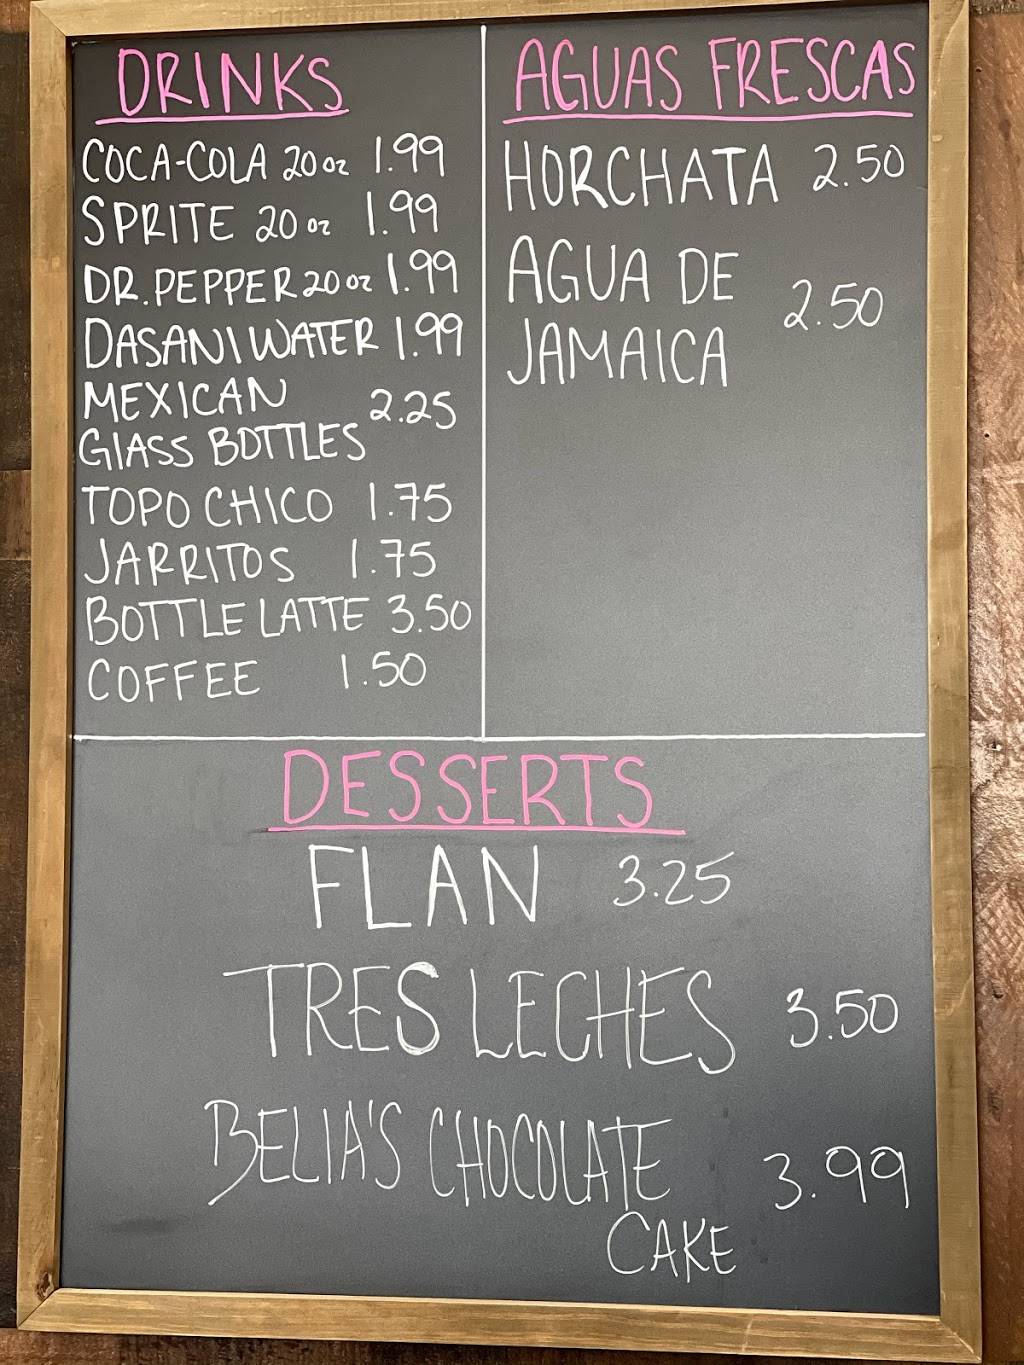 DRINKS
COCA-COLA 20oz 1.99
SPRITE 20oz 1.99
DR. PEPPER 20oz 1.99
DASANI WATER 1.99
MEXICAN
GLASS BOTTLES 2.25
TOPO CHICO 1.75
JARRITOS 1.75
BOTTLE LATTE 3.50
COFFEE 1.50
AGUAS FRESCAS
HORCHATA 2.50
AGUA DE
JAMAICA 2.50
DESSERTS
FLAN 3.25
TRES LECHES 3.50
BELIA'S CHOCOLATE
CAKE 3.99